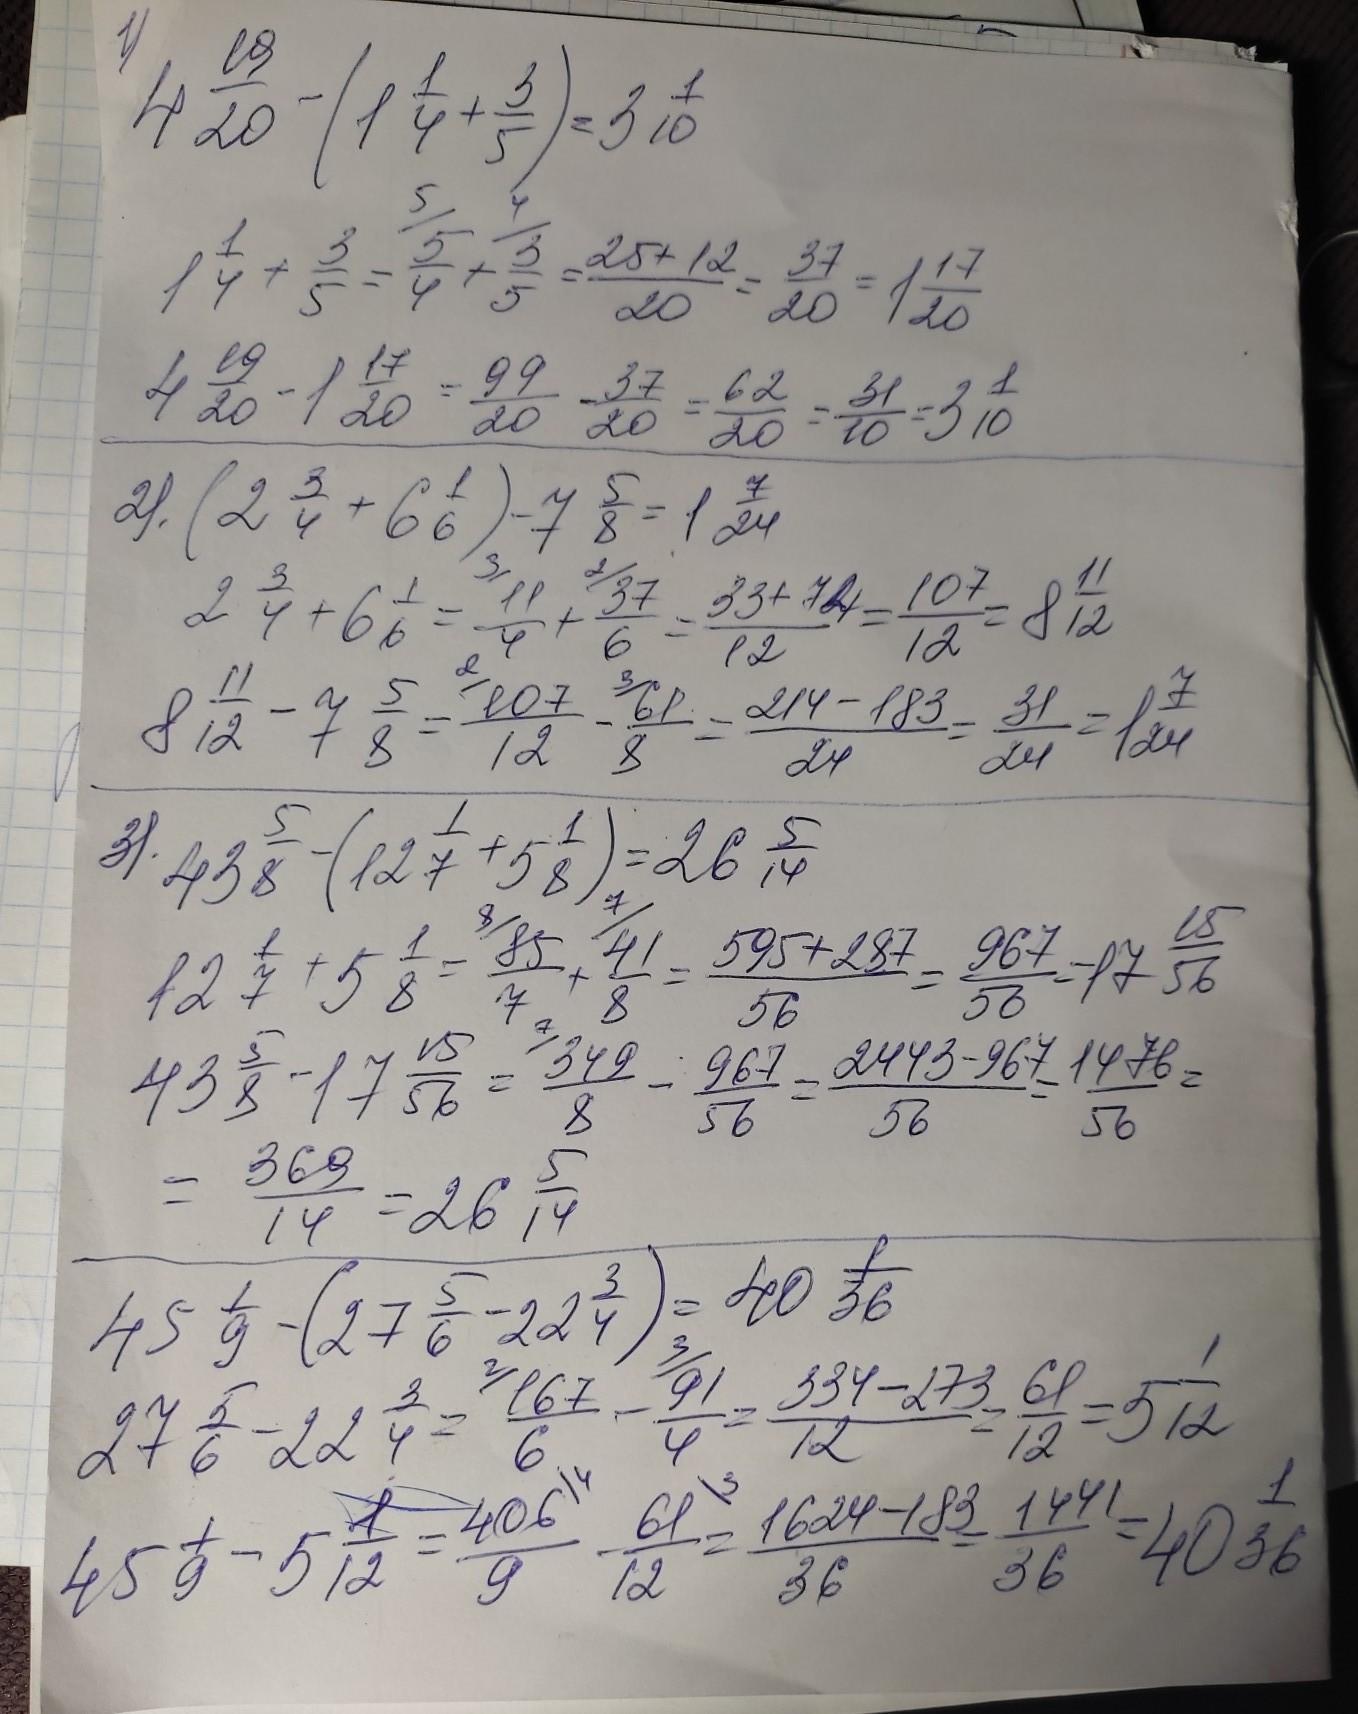 1) 4 19/20 - (1 1/4 + 3/5) = 3 1/10
1 1/4 + 3/5 = 5/ 5/4 + 4/ 3/5 = (25+12)/20 = 37/20 = 1 17/20
4 19/20 - 1 17/20 = 99/20 - 37/20 = 62/20 = 31/10 = 3 1/10
2). (2 3/4 + 6 1/6) - 7 5/8 = 1 7/24
2 3/4 + 6 1/6 = 3/ 11/4 + 2/ 37/6 = (33+74)/12 = 107/12 = 8 11/12
8 11/12 - 7 5/8 = 2/ 107/12 - 3/ 61/8 = (214-183)/24 = 31/24 = 1 7/24
3). 43 5/8 - (12 1/7 + 5 1/8) = 26 5/14
12 1/7 + 5 1/8 = 8/ 85/7 + 7/ 41/8 = (595+287)/56 = 967/56 = 17 15/56
43 5/8 - 17 15/56 = 7/ 349/8 - 967/56 = (2443-967)/56 = 1476/56 =
= 369/14 = 26 5/14
45 1/9 - (27 5/6 - 22 3/4) = 40 1/36
27 5/6 - 22 3/4 = 2/ 167/6 - 3/ 91/4 = (334-273)/12 = 61/12 = 5 1/12
45 1/9 - 5 1/12 = 406/9 \4 61/12 \3 = (1624-183)/36 = 1441/36 = 40 1/36